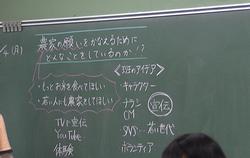 (月)
農家の願いをかなえるために
どんなことをしているのか!?
・もっとお米を食べてほしい
・若い人にも農家をしてほしい
<班のアイデア>
キャラクター
チラシ
CM
宣伝
SNS…若い世代
ボランティア
TVで宣伝
YouTube
体験